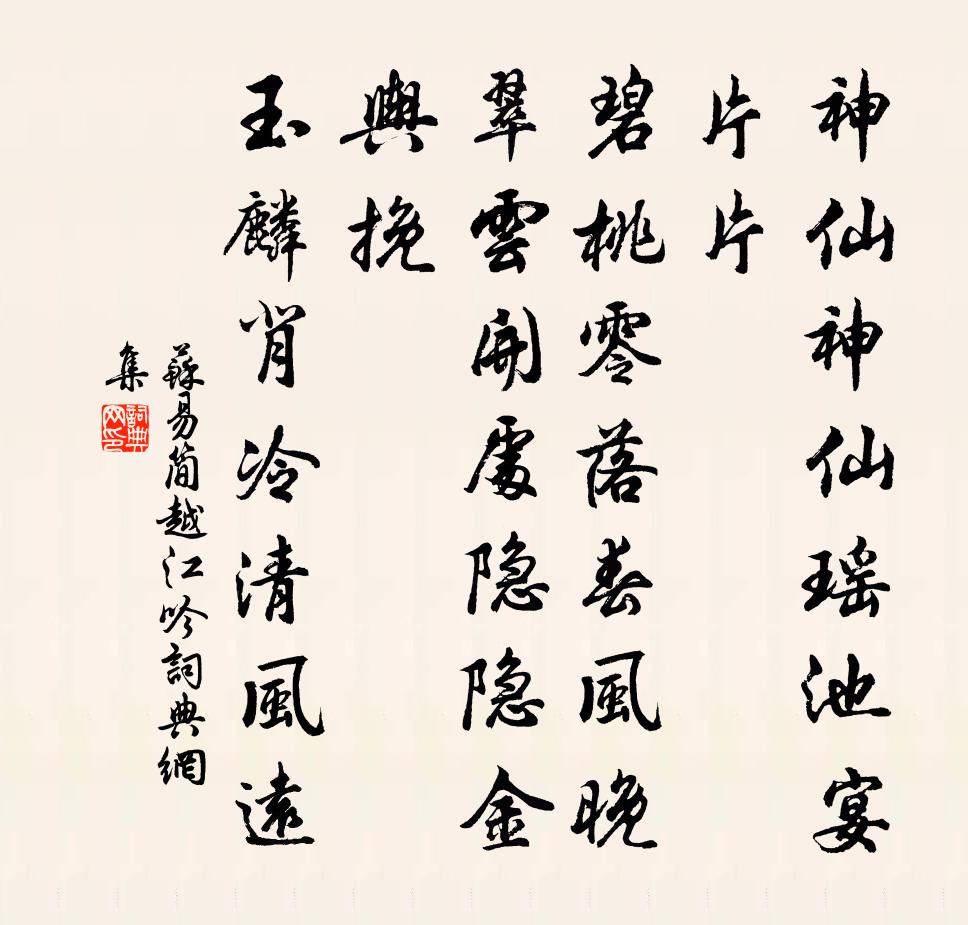 神仙神仙瑶池宴
片片
碧桃零落春風晚
翠雲開處隐隐金
輿挽
玉麟背冷清風遠
蘇易簡越江吟詞典網
集
詞典网印